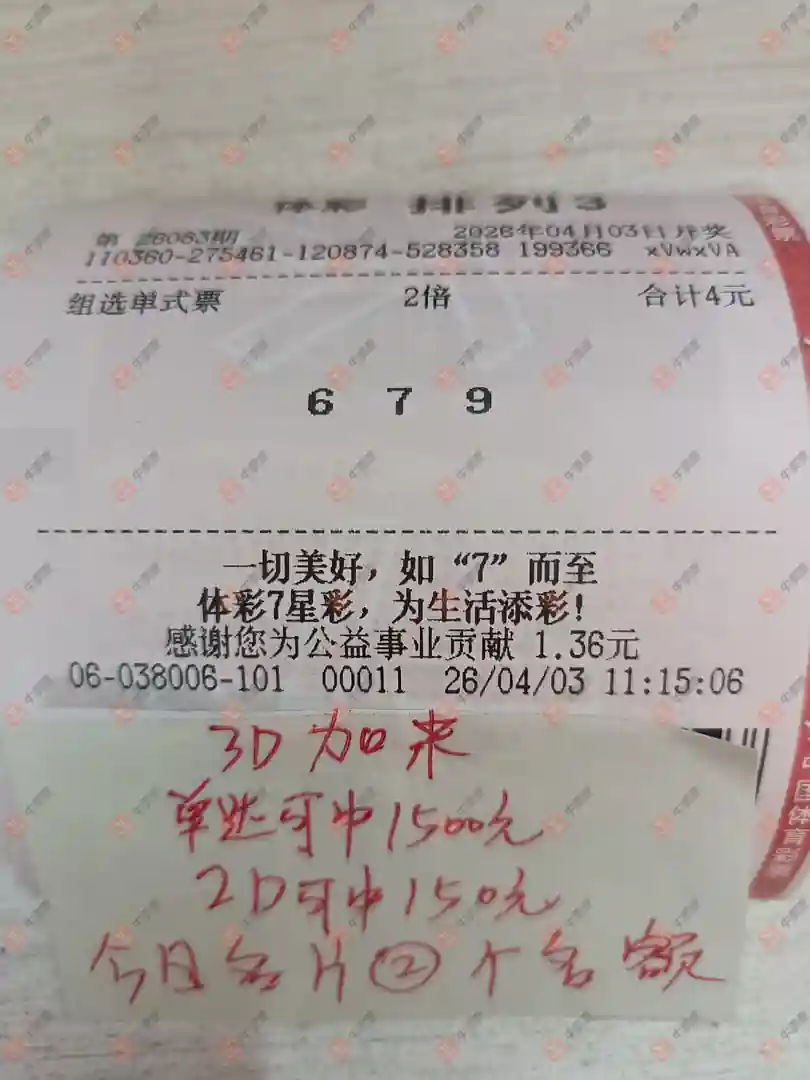 体彩 排列3
第 26083期 2026年04月03日开奖
110360-275461-120874-528358 199366 xVwxVA
组选单式票 2倍 合计4元
6 7 9
一切美好，如“7”而至
体彩7星彩，为生活添彩！
感谢您为公益事业贡献 1.36元
06-038006-101 00011 26/04/03 11:15:06
3D加来
单选可中1500元
2D可中150元
今日名片②个名额
中国体育彩票